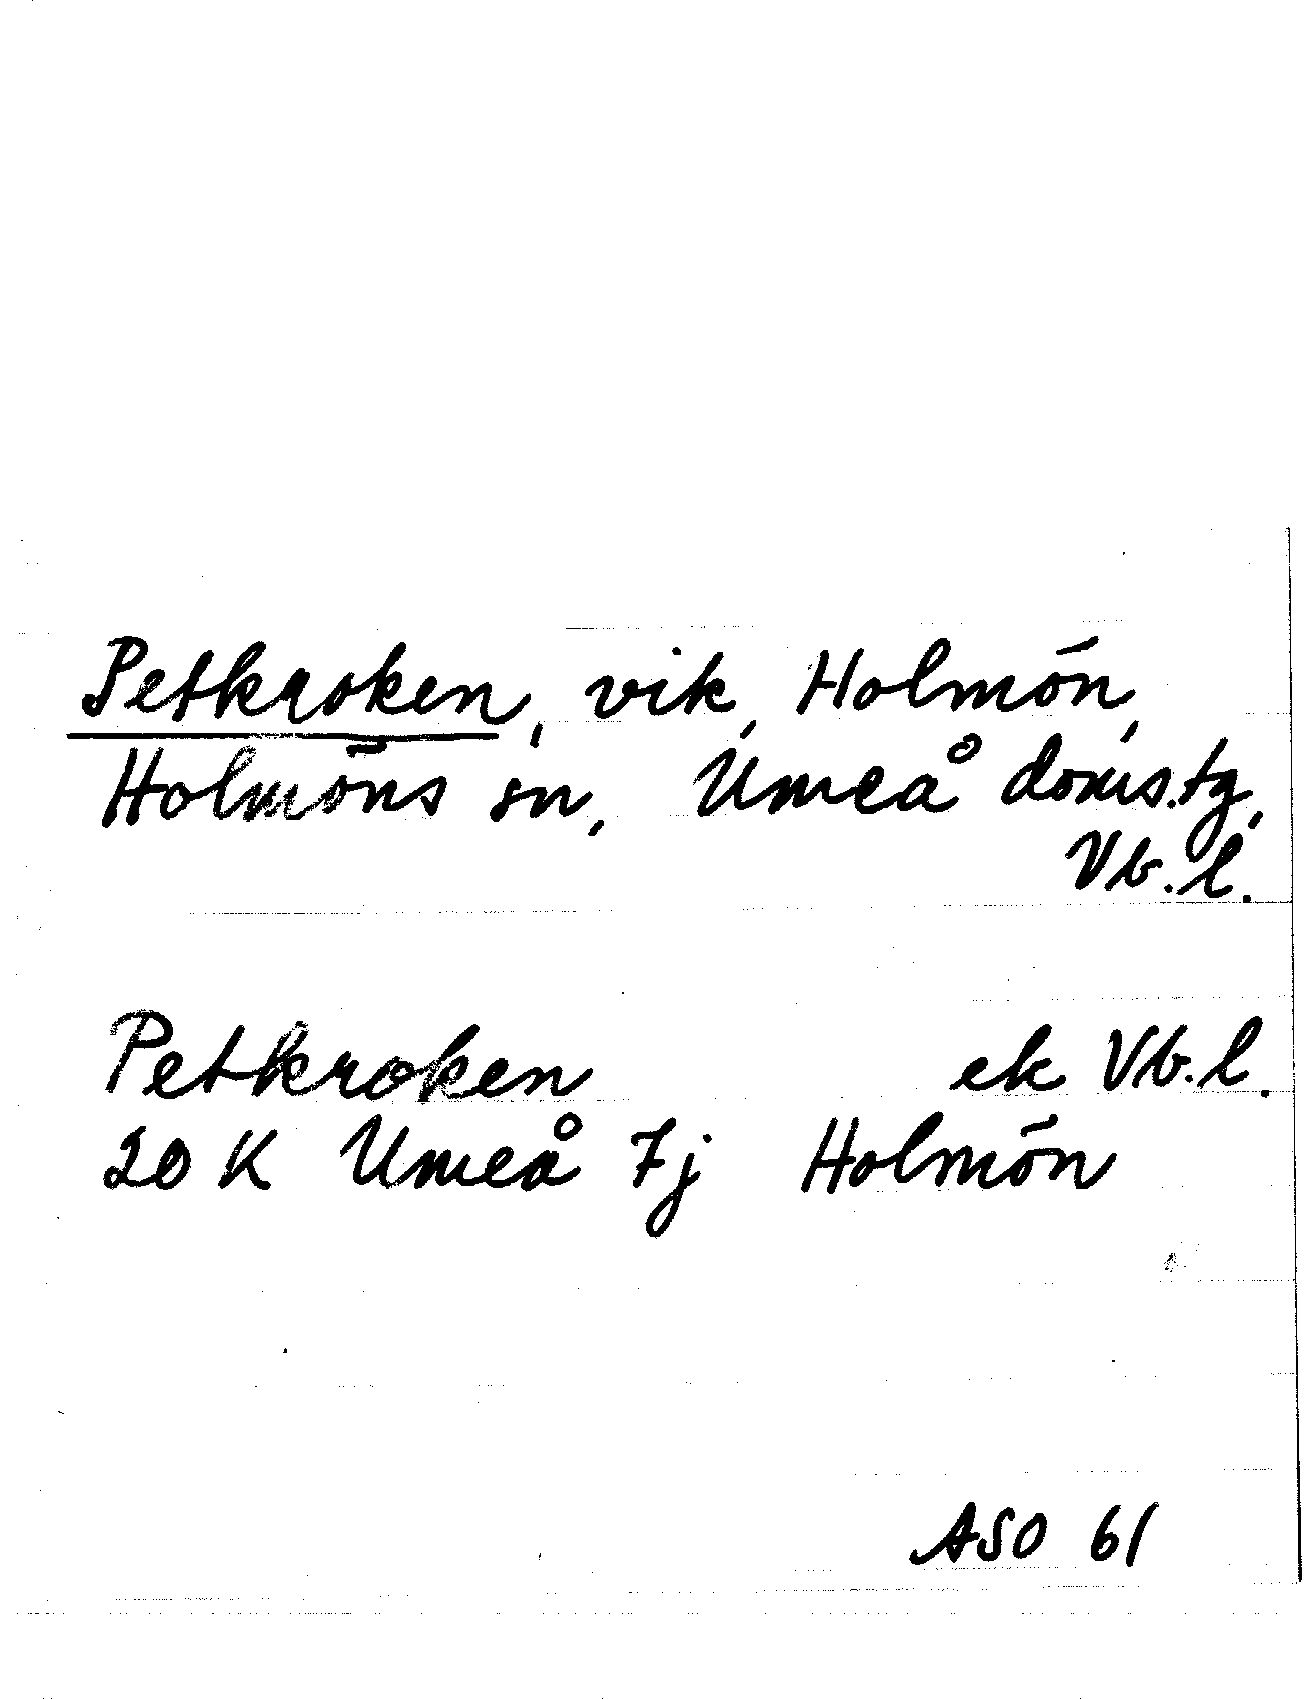 Petkroken, vik, Holmön,
Holmöns sn, Umeå doms.tg,
Vb.l.
Petkroken ek Vb.l.
20 K Umeå 7j Holmön
ASO 61